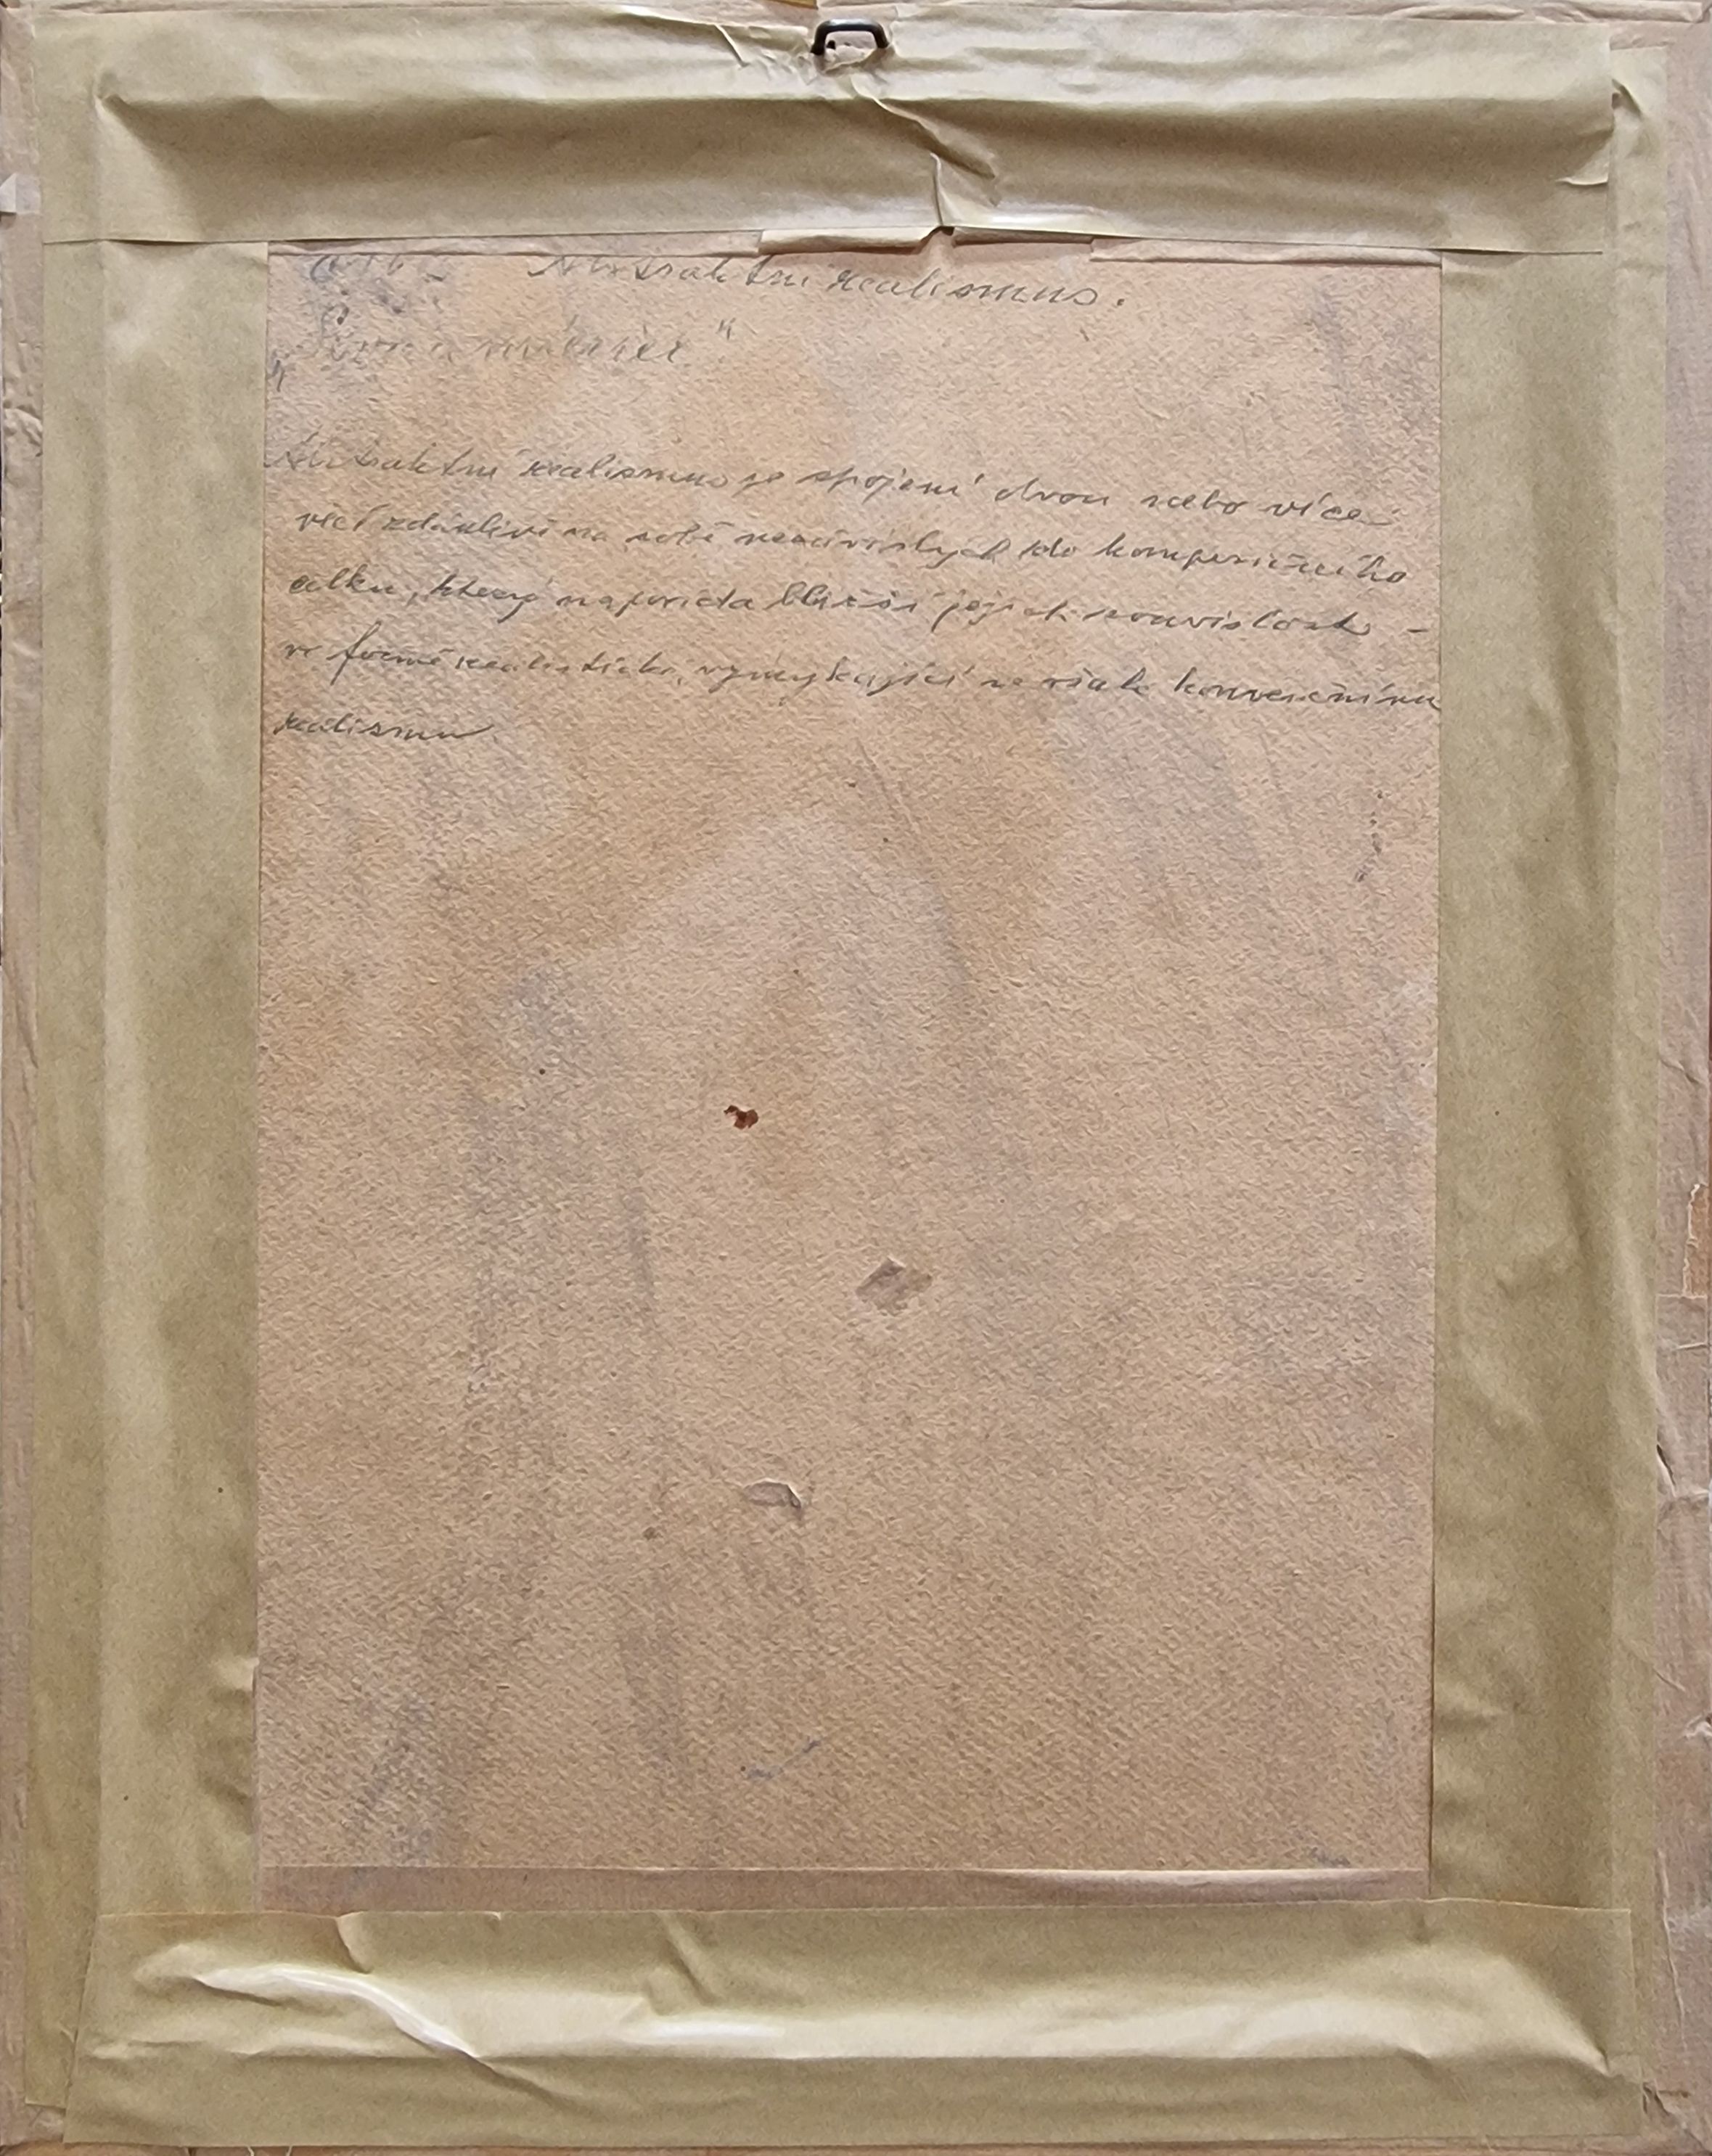 Abstraktní realismus.
Abstraktní realismus je spojení dvou nebo více
věcí zdánlivě na sobě nezávislých do kompozičního
celku, který napovídá bližší jejich souvislost -
ve formě realistické, vymykající se však konvenčnímu
realismu.